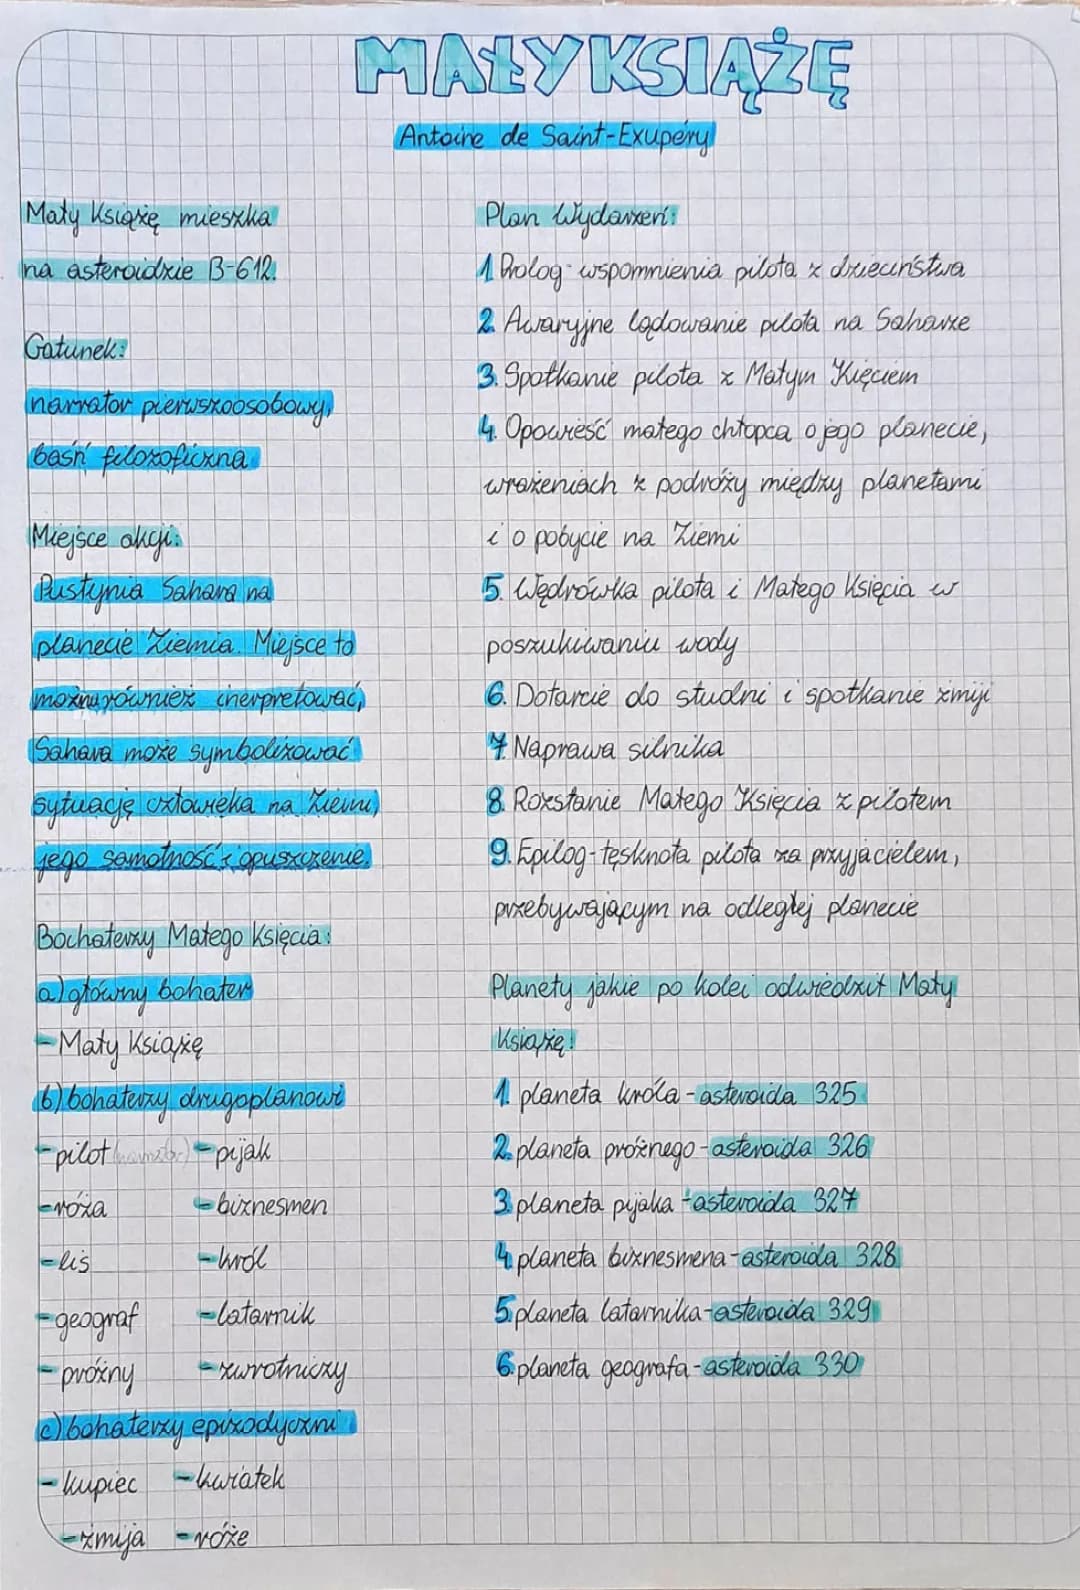 MAŁY KSIĄŻĘ
Antoine de Saint-Exupéry
Mały Książę mieszka
na asteroidzie B-612.
Gatunek:
narrator pierwszoosobowy,
baśń filozoficzna
Miejsce akcji:
Pustynia Sahara na
planecie Ziemia. Miejsce to
można również inerpretować,
Sahara może symbolizować
sytuację człowieka na Ziemi,
jego samotność i opuszczenie.
Bochaterzy Małego Księcia:
a) główny bohater
- Mały Książę
b) bohaterzy drugoplanowi
- pilot (narrator) - pijak
- róża - biznesmen
- lis - król
- geograf - latarnik
- próżny - zwrotniczy
c) bohaterzy epizodyczni
- kupiec - kwiatek
- żmija - róże
Plan Wydarzeń:
1. Prolog - wspomnienia pilota z dzieciństwa
2. Awaryjne lądowanie pilota na Saharze
3. Spotkanie pilota z Małym Kięciem
4. Opowieść małego chłopca o jego planecie,
wrażeniach z podróży między planetami
i o pobycie na Ziemi
5. Wędrówka pilota i Małego Księcia w
poszukiwaniu wody
6. Dotarcie do studni i spotkanie żmiji
7. Naprawa silnika
8. Rozstanie Małego Księcia z pilotem
9. Epilog - tęsknota pilota za przyjacielem,
przebywającym na odległej planecie
Planety jakie po kolei odwiedził Mały
Książę:
1. planeta króla - asteroida 325
2. planeta próżnego - asteroida 326
3. planeta pijaka - asteroida 327
4. planeta biznesmena - asteroida 328
5. planeta latarnika - asteroida 329
6. planeta geografa - asteroida 330